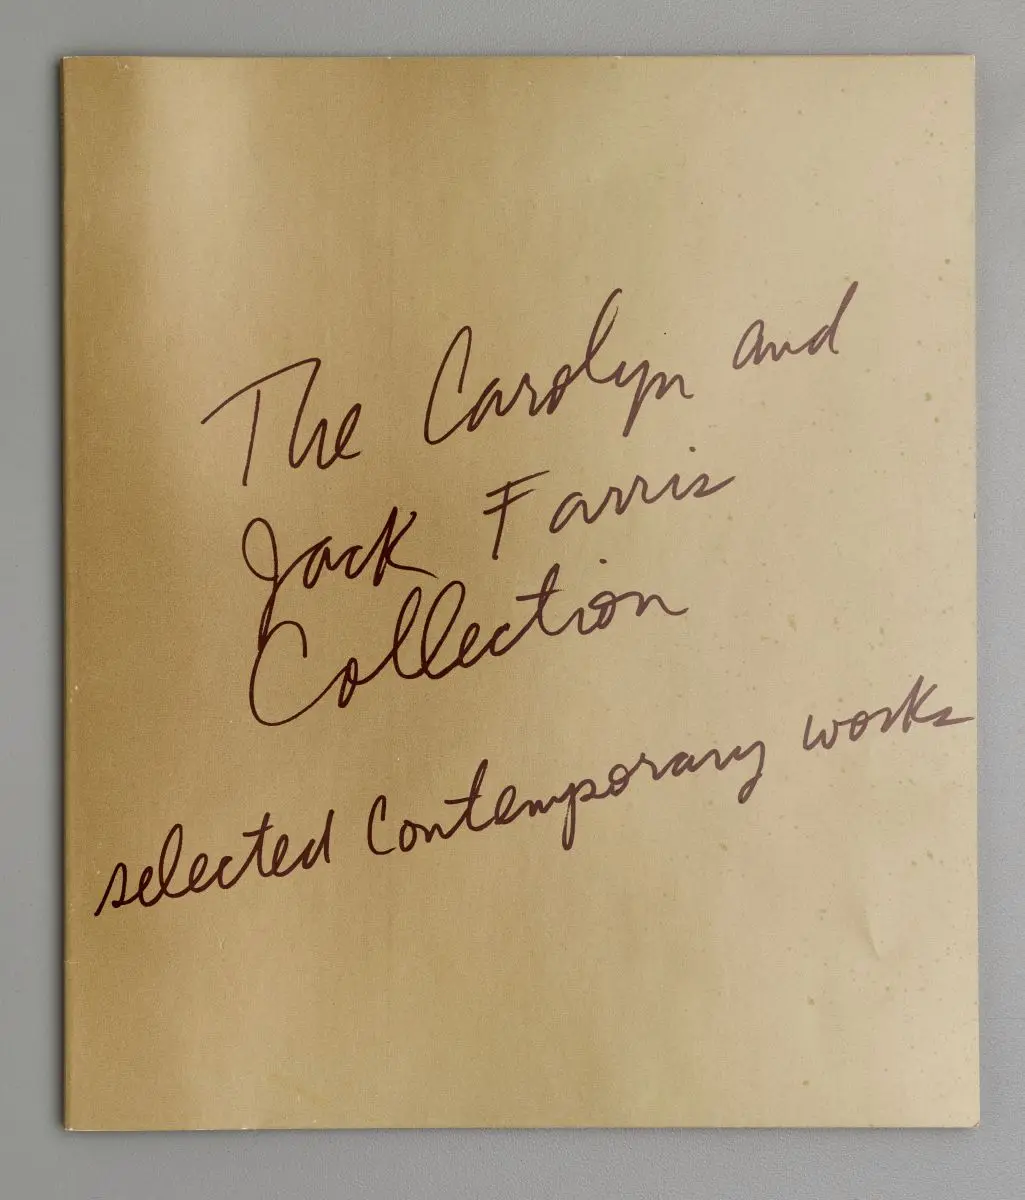 The Carolyn and
Jack Farris
Collection
selected Contemporary works